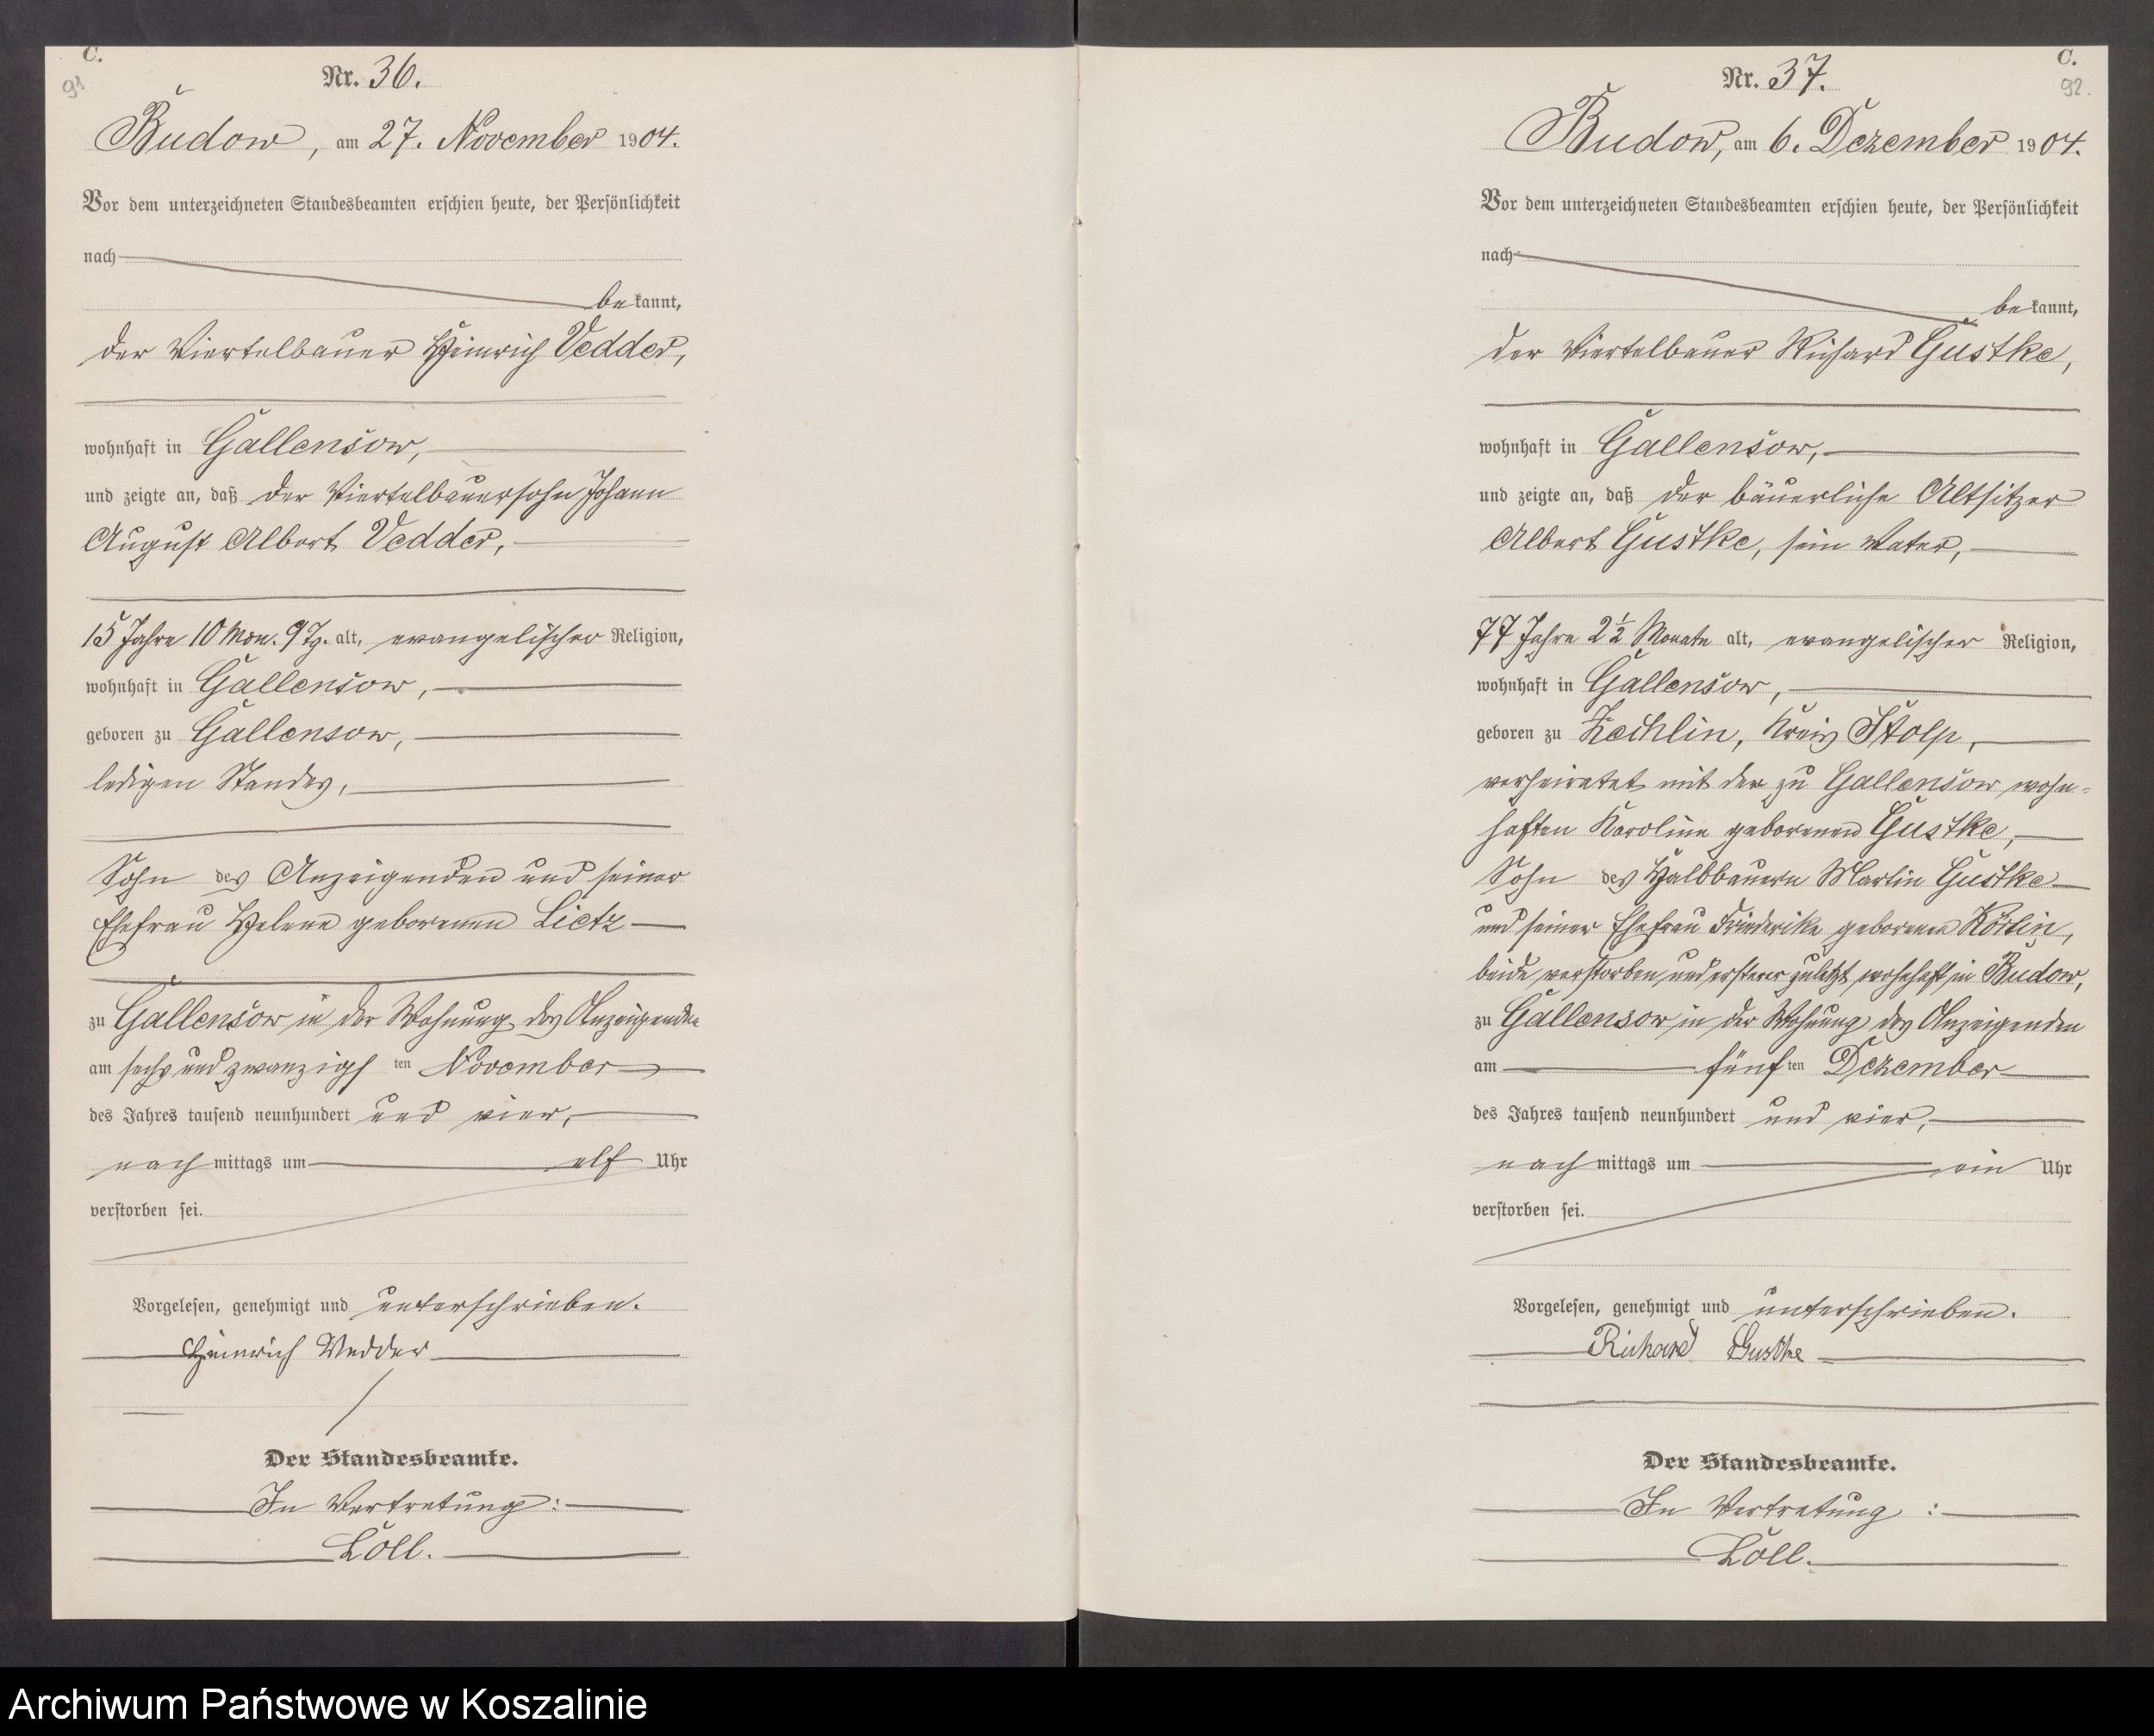 C.
91
Nr. 36.
Budow, am 27. November 1904.
Vor dem unterzeichneten Standesbeamten erschien heute, der Persönlichkeit
nach
bekannt,
der Viertelbauer Heinrich Vedder,
wohnhaft in Gallensow,
und zeigte an, daß der Viertelbauersohn Johann
August Albert Vedder,
15 Jahre 10 Mon. 9 Tg. alt, evangelischer Religion,
wohnhaft in Gallensow,
geboren zu Gallensow,
ledigen Standes,
Sohn des Anzeigenden und seiner
Ehefrau Helene geborenen Lietz
zu Gallensow in der Wohnung des Anzeigenden
am sechs und zwanzigsten November
des Jahres tausend neunhundert und vier,
nachmittags um elf Uhr
verstorben sei.
Vorgelesen, genehmigt und unterschrieben.
Heinrich Vedder
Der Standesbeamte.
In Vertretung:
Löll.
C.
92.
Nr. 37.
Budow, am 6. Dezember 1904.
Vor dem unterzeichneten Standesbeamten erschien heute, der Persönlichkeit
nach
bekannt,
der Viertelbauer Richard Gustke,
wohnhaft in Gallensow,
und zeigte an, daß der bäuerliche Altsitzer
Albert Gustke, sein Vater,
77 Jahre 2½ Monate alt, evangelischer Religion,
wohnhaft in Gallensow,
geboren zu Zechlin, Kreis Stolp,
verheiratet mit der zu Gallensow wohn-
haften Karoline geborenen Gustke,
Sohn des Halbbauern Martin Gustke
und seiner Ehefrau Friederike geborenen Körlin,
beide verstorben und ersterer zuletzt wohnhaft in Budow,
zu Gallensow in der Wohnung des Anzeigenden
am fünften Dezember
des Jahres tausend neunhundert und vier,
nachmittags um ein Uhr
verstorben sei.
Vorgelesen, genehmigt und unterschrieben.
Richard Gustke
Der Standesbeamte.
In Vertretung:
Löll.
Archiwum Państwowe w Koszalinie